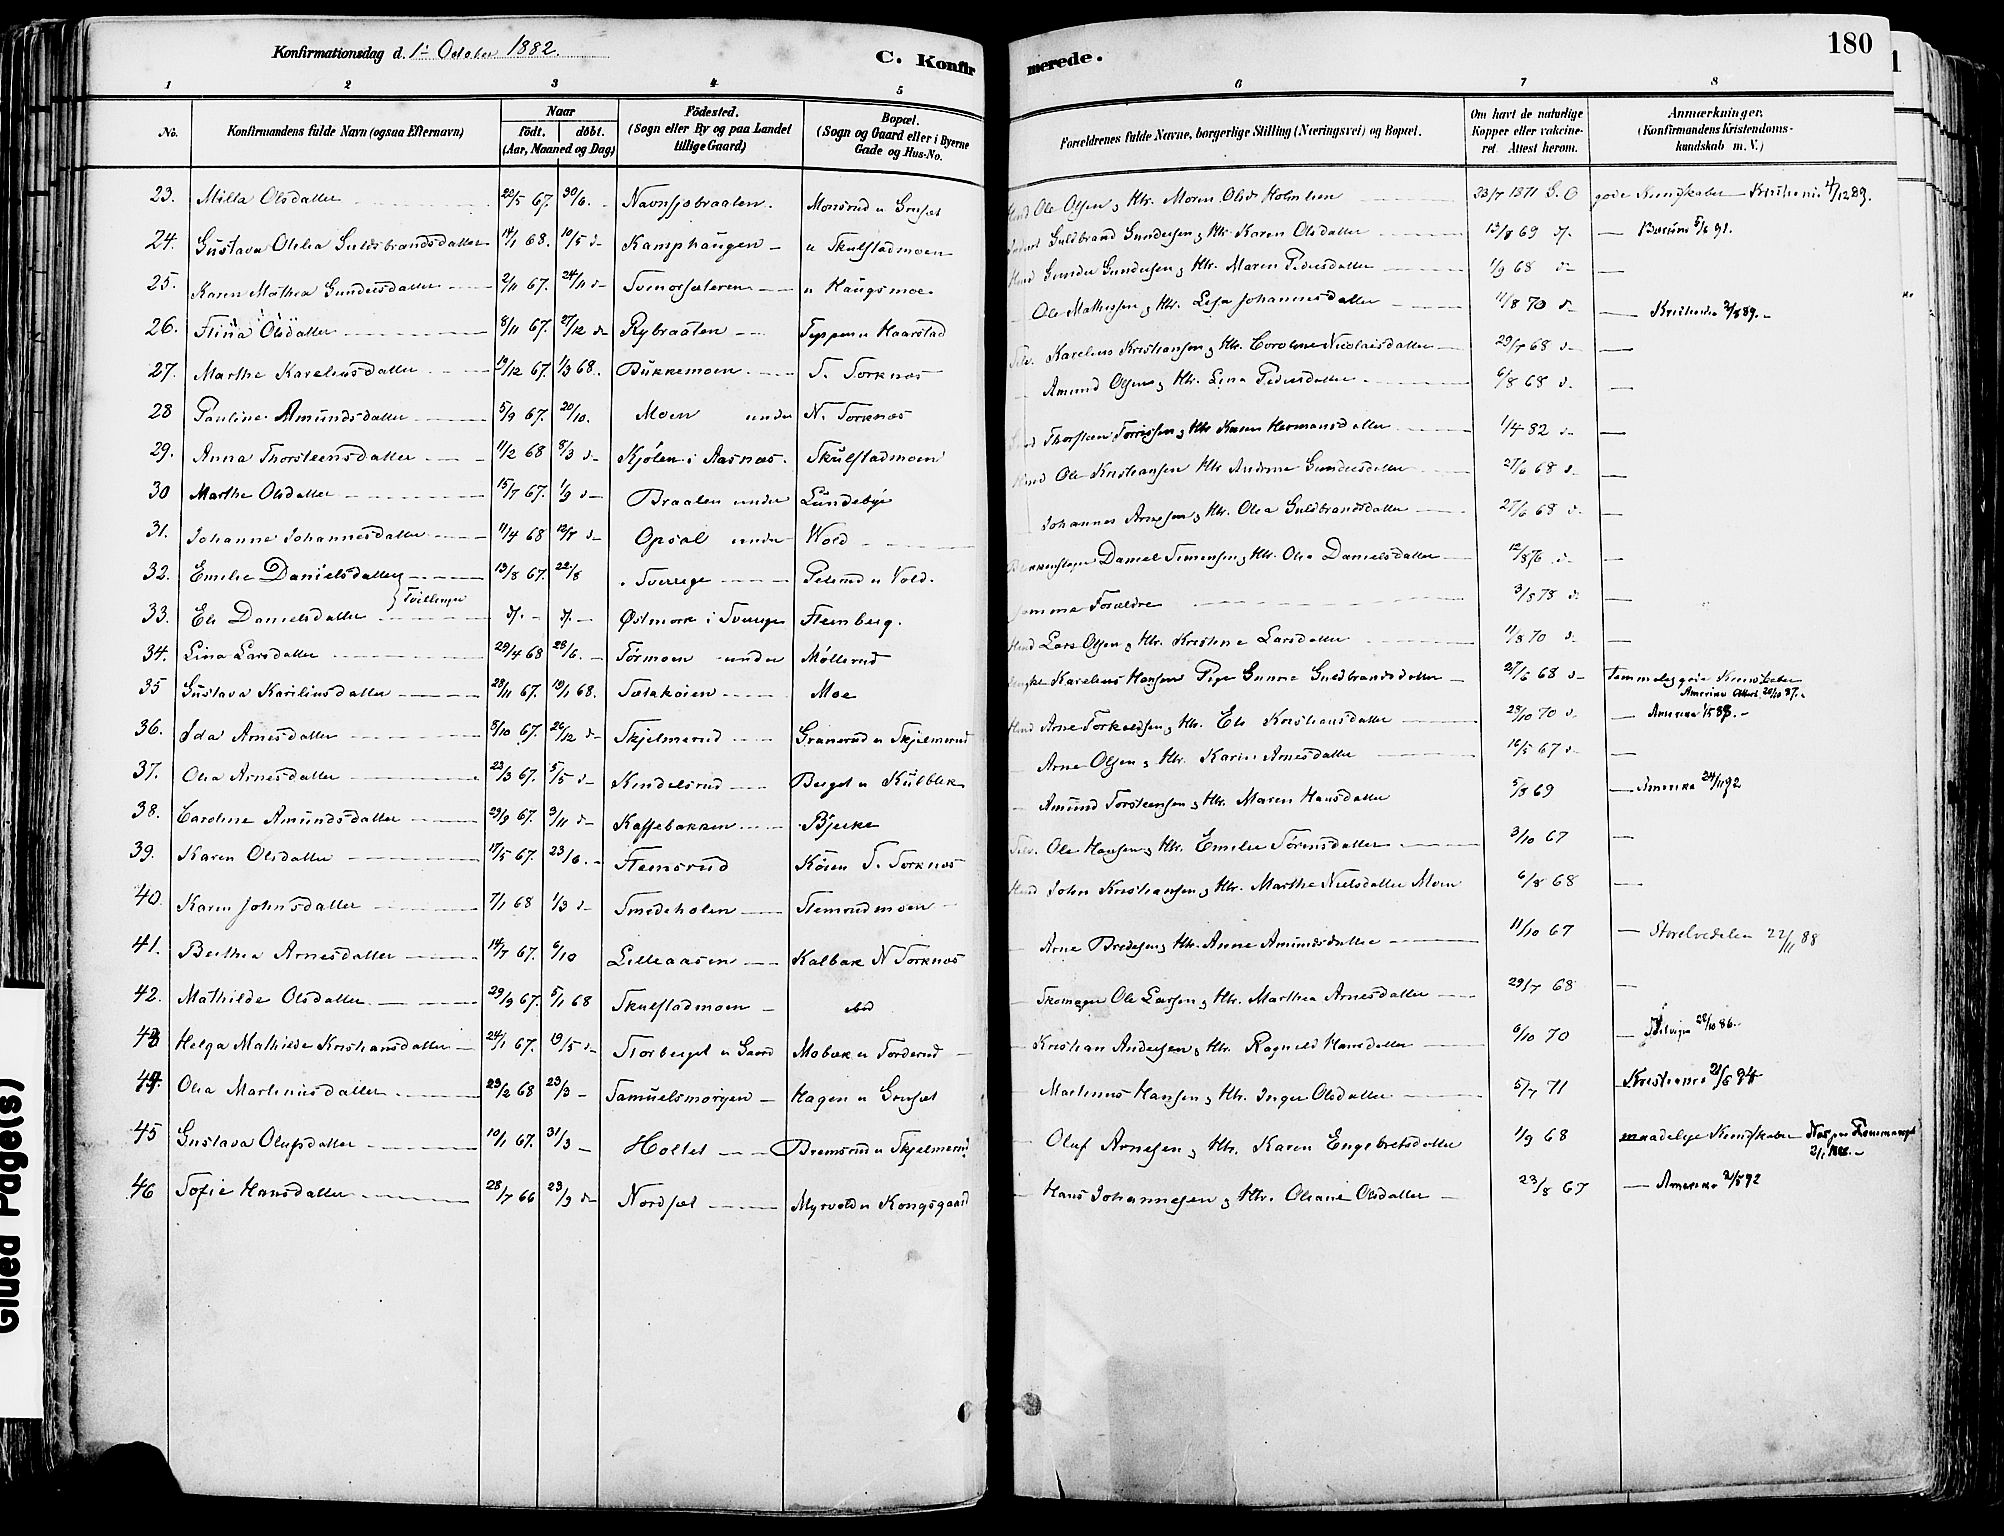 Konfirmationsdag d. 1ste October 1882.
C. Konfirmerede.
180
1 2 3 4 5 6 7 8
No. Konfirmandens fulde Navn (ogsaa Efternavn) Naar født. døbt. (Aar, Maaned og Dag) Födested. (Sogn eller By og paa Landet tillige Gaard) Bopæl. (Sogn og Gaard eller i Byerne Gade og Hus-No. Forældrenes fulde Navne, borgerlige Stilling (Næringsvei) og Bopæl. Om havt de naturlige Kopper eller vakcineret Attest herom. Anmærkninger. (Konfirmandens Kristendomskundskab m. V.)
23. Milla Olsdatter 20/5 67. 30/6. Navnssbraaten. Monsrud u Grusæt Ole Olsen & Htr. Maren Olsdr Holmlien 23/7 1871 S. O gode Kundskaber Kristiania 4/12 89.
24. Gustava Otilia Guldbrandsdatter 14/1 68. 10/5 d- Kamphaugen u Skulstadmoen Guldbrand Gundersen & Htr. Karen Olsdatter 13/8 69 d. — Bærum 5/6 91.
25. Karen Mathea Gundersdatter 2/11 67. 24/11 d- Svenorsæteren u Haugsmoe Gunder Gundersen & Htr. Maren Pedersdatter 1/9 68 d- —
26. Stina Olsdatter 8/11 67. 27/12 d- Rybraaten Teppen u Haarstad Ole Mathissen & Htr. Lisa Johannesdatter 11/8 70 d- — Kristiania 2/8 89.-
27. Marthe Kareliusdatter 19/12 67. 1/3 68. Bukkemoen S. Torknæs Selv. Karelius Kristiansen & Htr. Caroline Nicolaisdatter 29/7 68 d- —
28 Pauline Amundsdatter 5/9 67. 20/10. Moen under N. Torknæs Amund Olsen & Htr. Lina Pedersdatter 6/8 68 d. —
29. Anna Thorsteensdatter 11/2 68 8/3 d- Kjølen i Aasnæs. Skulstadmoen Thorsteen Torrissen & Htr Karen Hermansdatter 1/4 82 d- —
30 Marthe Olsdatter 15/7 67. 1/9 d- Braaten under Lundebye Ole Kristiansen Htr Andrine Gundersdatter 27/6 68 d. —
31. Johanne Johannesdatter 11/4 68 12/7 d- Opsal under Wold Johannes Arnesen & Htr. Olea Guldbrandsdatter 27/6 68 d- —
32. Emilie Danielsdatter } Tvillinger 19/8 67. 22/8 Sverrige Peisrud u Vold. Daniel Simensen & Htr. Olia Danielsdatter 12/8 76 d- —
33. Eli Danielsdatter d. - d. - Østmark i Sverige Stemberg. Samme Forældre 3/8 78 d. —
34. Lina Larsdatter 29/4 68 28/6. - Tørmoen under Møllerud Lars Olsen & Htr. Kristine Larsdatter 11/8 70 d- —
35 Gustava Kariliusdatter 28/11 67. 19/1 68. Sætakøien Moe Karelius Hansen Pige Gunine Guldbrandsdatter 27/6 68 d- temmelig gode Kundskaber Amerika Attest. 20/10 87.
36. Ida Arnesdatter 8/10 67. 26/12 d- Skjelmerud Granerud u Skjelmerud Arne Torkeldsen & Htr. Eli Kristiansdatter 28/10 70 d. — Amerika 4/5 88.-
37. Olia Arnesdatter 23/3 67. 5/5 d- Kindelsrud Berget u Kulblik Arne Olsen & Htr. Karin Arnesdatter 16/5 67 d- —
38. Caroline Amundsdatter 29/9 67. 3/11 d- Kaffebakken Bjerke Amund Torsteensen & Htr. Maren Hansdatter 5/8 69 — Amerika 24/11 92
39. Karen Olsdatter 17/5 67. 23/6. - Stemsrud Køien S. Torknæs Selv. Ole Hansen & Htr. Emilie Sørensdatter 3/10 67 —
40. Karen Johnsdatter 7/1 68 1/3 d- Smedeholen Stemrudmoen John Kristiansen & Htr. Marthe Nielsdatter Moen 6/8 68 —
41. Berthea Arnesdatter 14/7 67. 6/10 Lilleaasen Kalbæk N Torknæs Arne Bredesen & Htr. Anne Amundsdatter 11/10 67 — Storelvedalen 22/11 88
42. Mathilde Olsdatter 29/9 67. 5/1 68 Skulstadmoen ibid Skomager Ole Larsen & Htr. Marthea Arnesdatter 29/7 68 —
43 Helga Mathilde Kristiansdatter 24/1 67. 19/5 d- Storberget u Gaard Mobæk u Torderud Kristian Andersen & Htr. Ragnild Hansdatter 6/10 70 — 28/10 86.
44. Olia Martinusdatter 23/2 68 23/3 - Samuelsmorgen Hagen u Grusæt Martinus Hansen & Htr. Inger Olsdatter 5/7 71 Kristiania 21/6 94
45 Gustava Olufsdatter 10/1 67. 31/3 - Holtet Bremsrud u Skjelmerud Oluf Arnesen & Htr. Karen Engebretsdatter 1/9 68 maadelige Kundskaber
46 Sofie Hansdatter 28/7 66 23/9 d- Nordset Myrvold u Kongsgaard Hans Johannesen & Htr. Oliane Olsdatter 23/8 67 — Amerika 2/5 92
Glued Page(s)